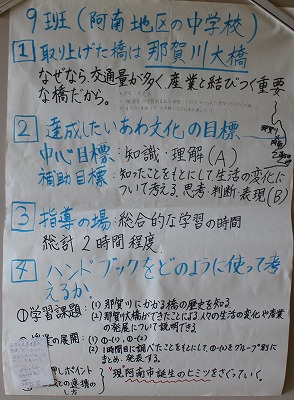 9班(阿南地区の中学校)
1 取り上げた橋は 那賀川大橋
なぜなら、交通量が多く、産業と結びつく重要
な橋だから。
2 達成したいあわ文化の目標
中心目標:知識・理解(A)
補助目標:知ったことをもとにして生活の変化に
ついて考える。思考・判断・表現(B)
3 指導の場:総合的な学習の時間
総計 2時間 程度
4 ハンドブックをどのように使って考
えるか。
①学習課題:(1) 那賀川にかかる橋の歴史を知る
(2) 那賀川大橋ができたことによる人々の生活の変化や産業
の発展について説明できる
の展開:(1) ①-(1), ①-(2)
(2) 1時間目に調べたことをもとにして、①-(2)をグループ別に
まとめ、発表する。
押しポイント
との連携の
し方
"現阿南市誕生のヒミツをさぐっていく。